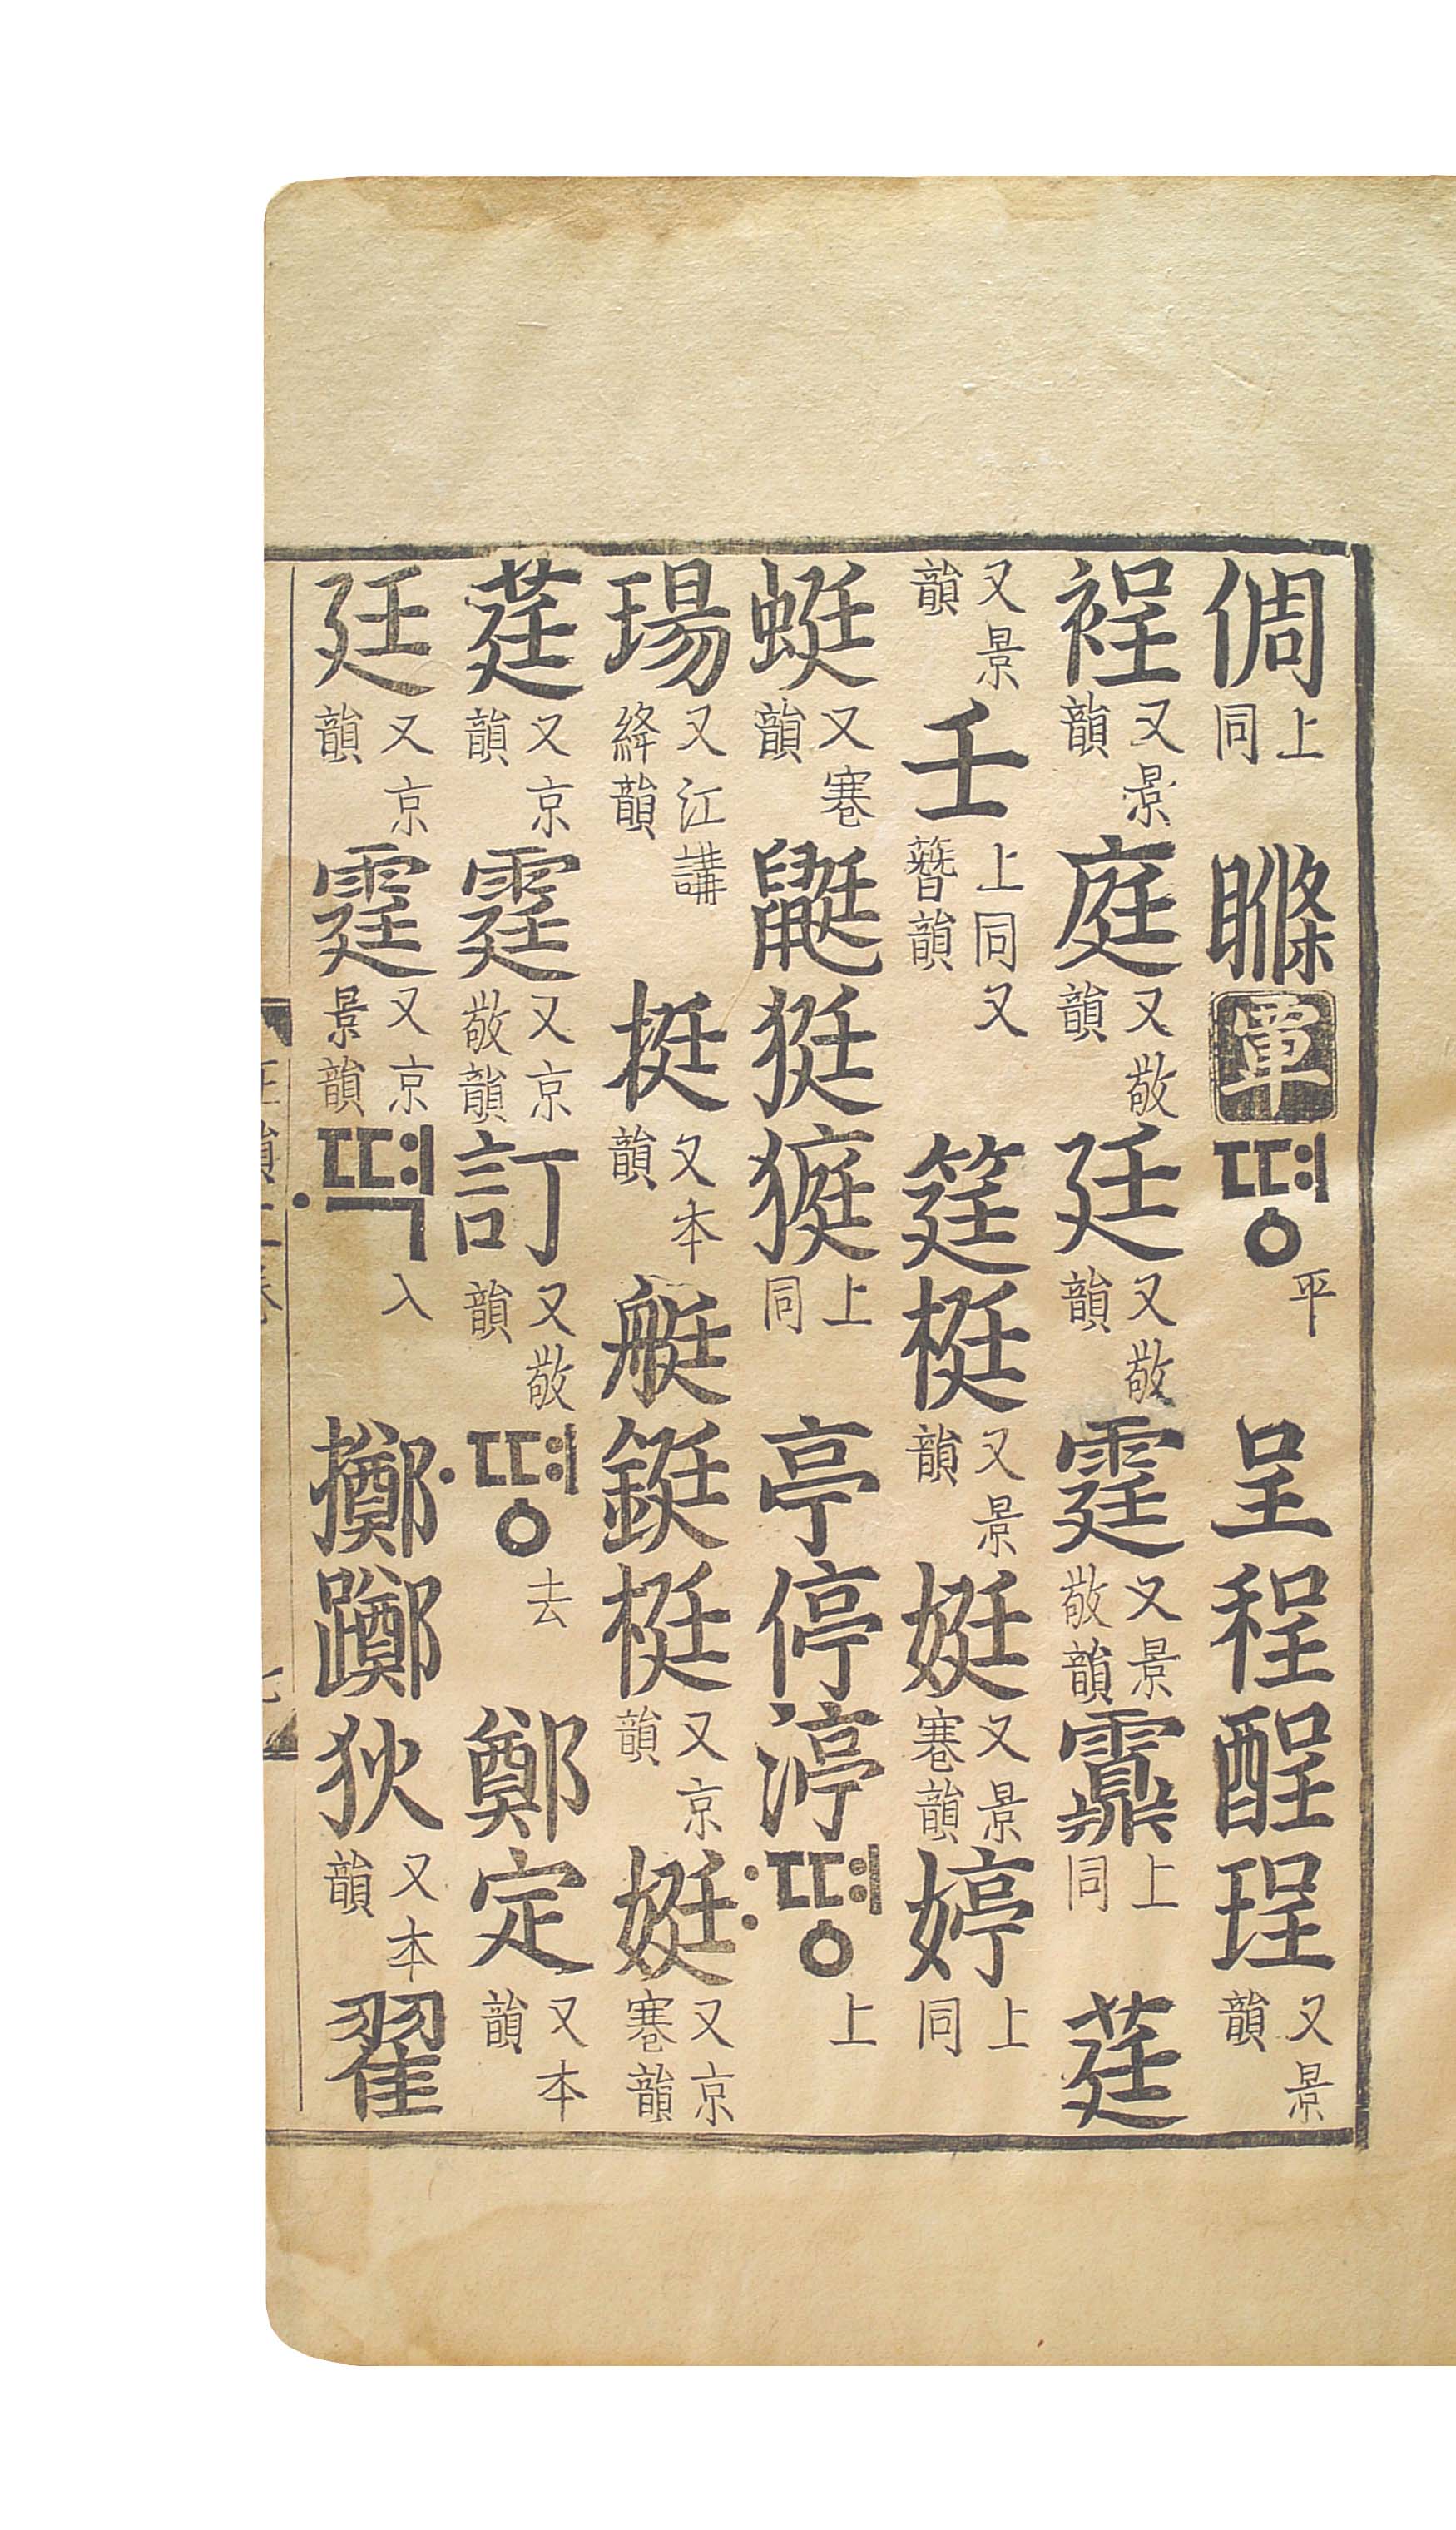 倜上同覃뗭平呈程酲珵又景韻
裎又景韻庭又敬韻廷又敬韻霆又景敬韻上同莛
又景韻壬上同又簪韻筳梃又景韻娗又景寋韻婷上同
蜓又寋韻鼮㹶上同亭停渟:뗭上
瑒又江講絳韻挺又本韻艇鋌梃又京韻娗又京寋韻
莛又京韻霆又京敬韻訂又敬韻·뗭去鄭定又本韻
廷又京韻霆又京景韻·뗙入擲躑狄又本韻翟